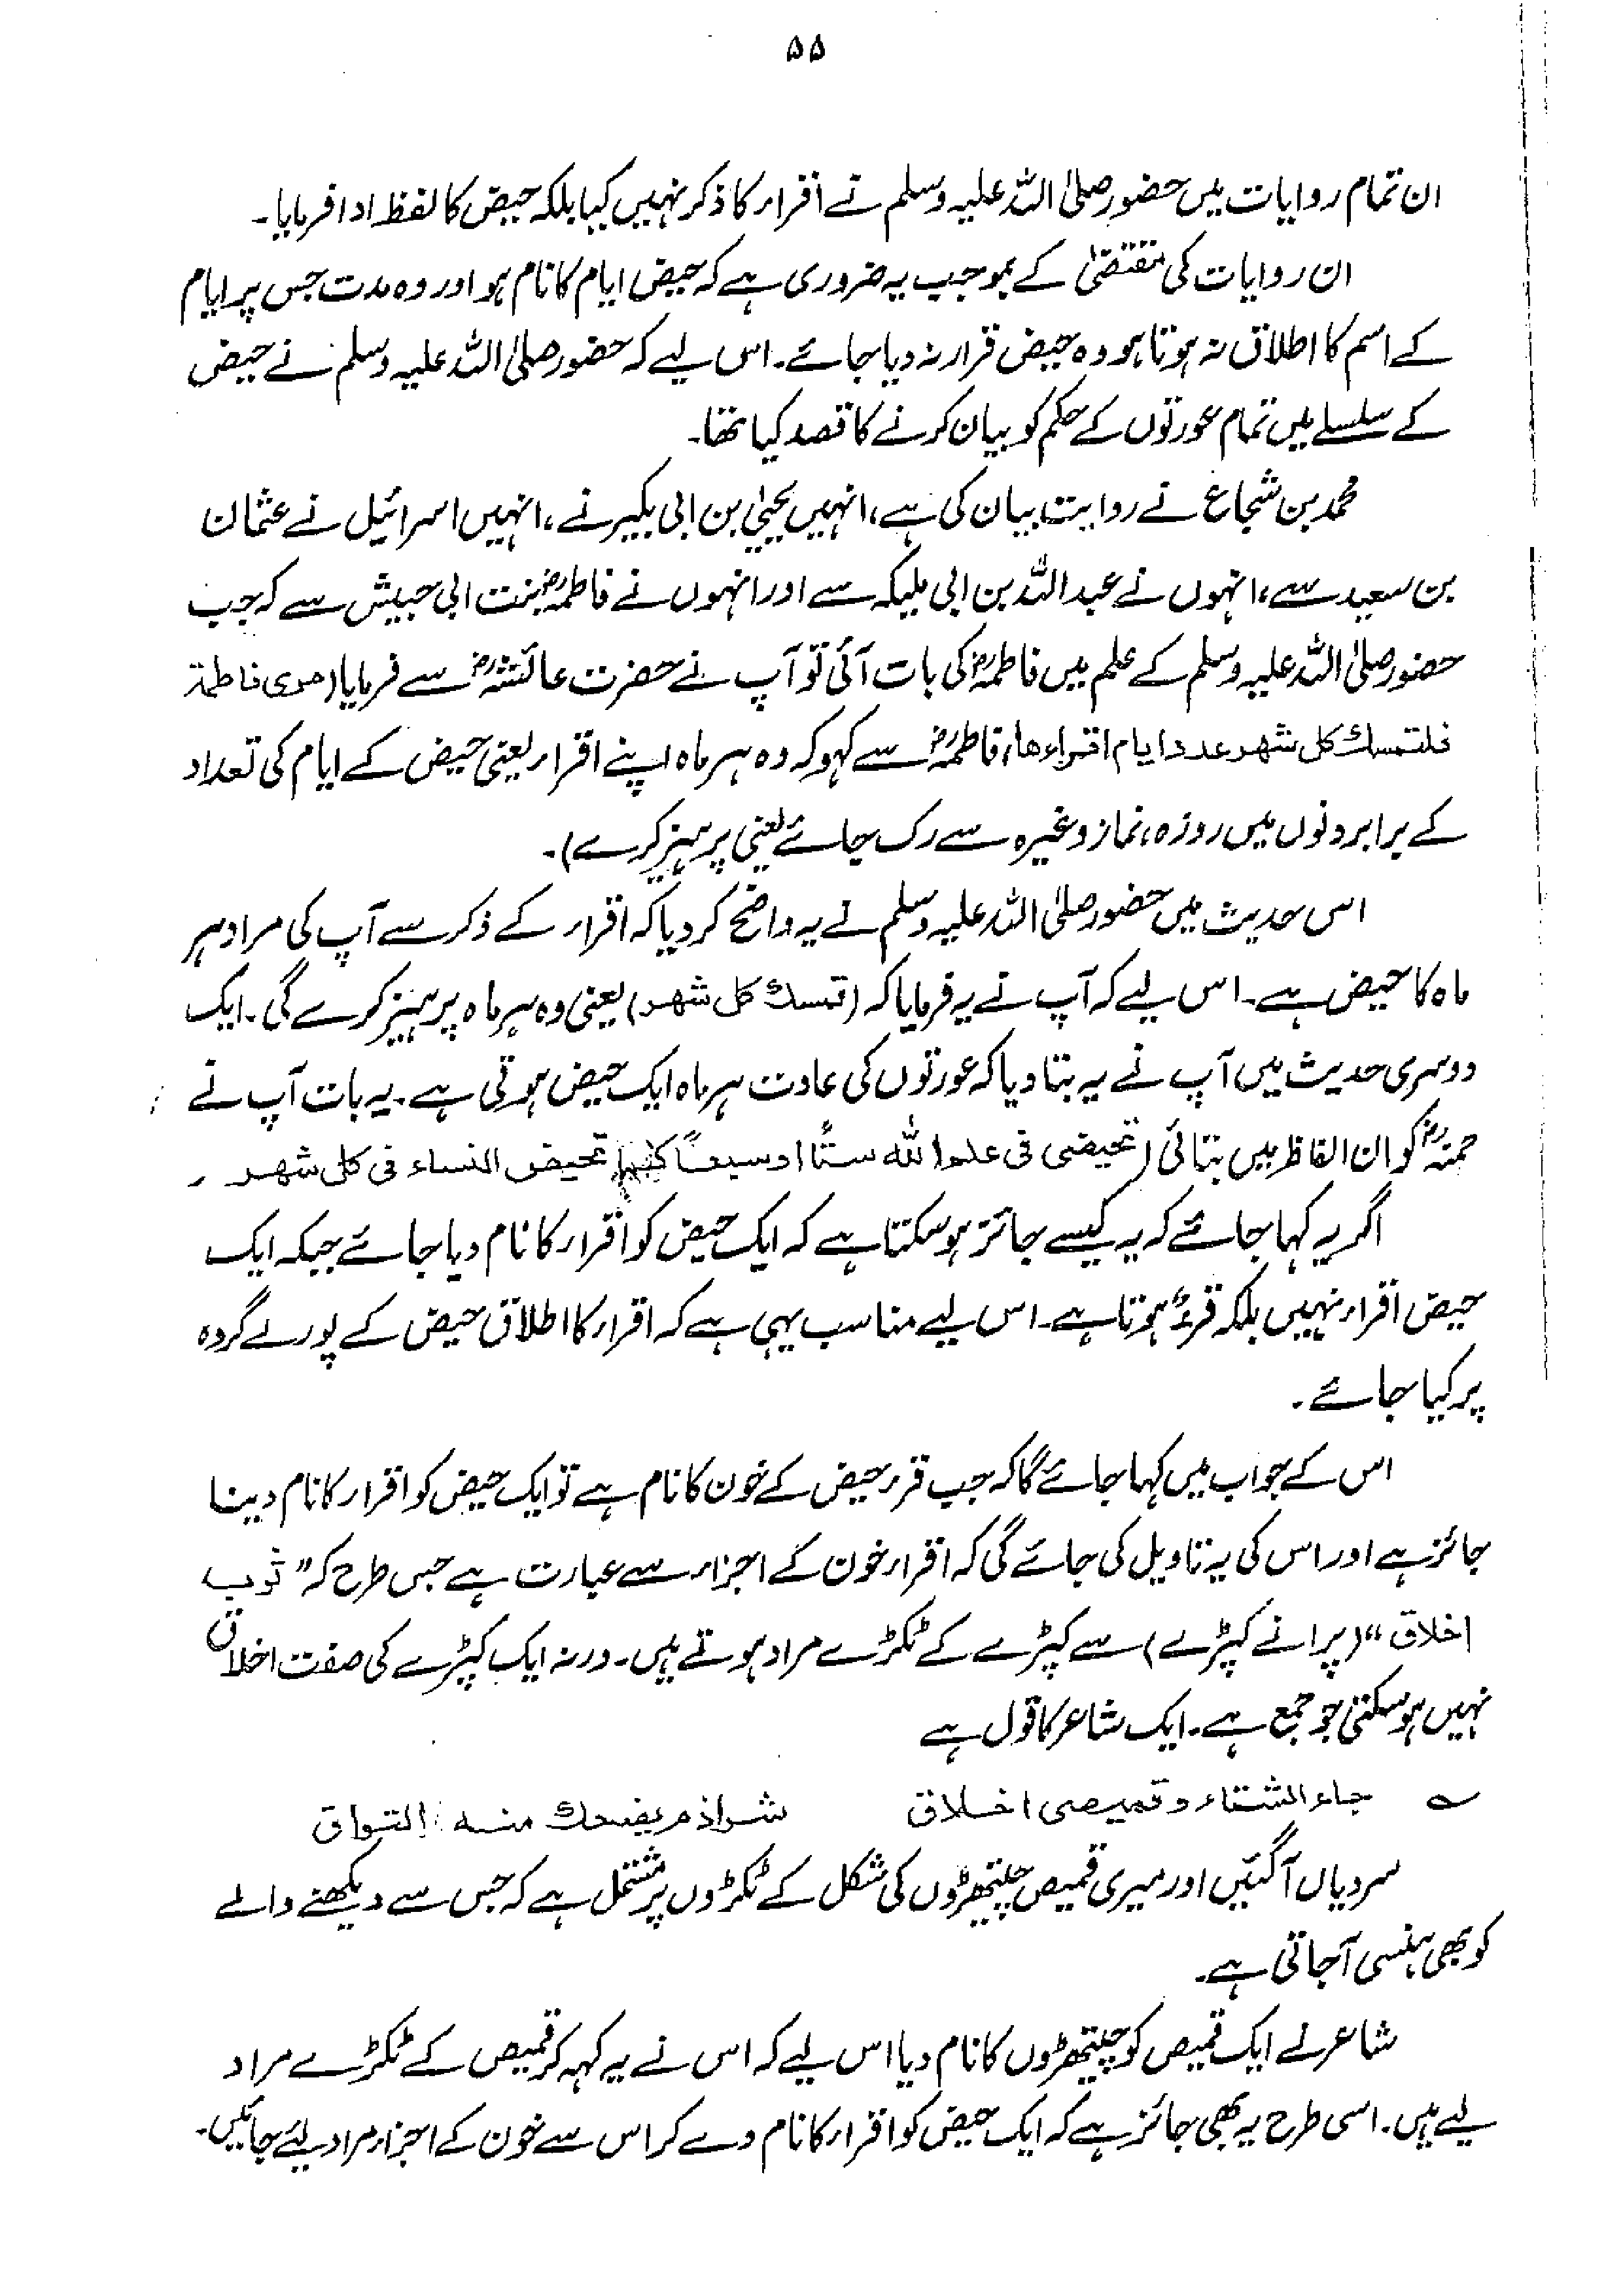 ۵۵
ان تمام روایات میں حضور صلی اللہ علیہ وسلم نے اقراء کا ذکر نہیں کیا بلکہ حیض کا لفظ ادا فرمایا۔
ان روایات کی مقتضیٰ کے بموجب یہ ضروری ہے کہ حیض ایام کا نام ہو اور وہ مدت جس پر ایام
کے اسم کا اطلاق نہ ہوتا ہو وہ حیض قرار نہ دیا جائے۔ اس لیے کہ حضور صلی اللہ علیہ وسلم نے حیض
کے سلسلے میں تمام عورتوں کے حکم کو بیان کرنے کا قصد کیا تھا۔
محمد بن شجاع نے روایت بیان کی ہے، انہیں یحییٰ بن ابی بکیر نے، انہیں اسرائیل نے عثمان
بن سعید سے، انہوں نے عبد اللہ بن ابی ملیکہ سے اور انہوں نے فاطمہؓ بنت ابی حبیش سے کہ جب
حضور صلی اللہ علیہ وسلم کے علم میں فاطمہؓ کی بات آئی تو آپ نے حضرت عائشہؓ سے فرمایا (مری فاطمة
فلتمسك كل شهر عدد ايام اقراءها، فاطمہؓ سے کہو کہ وہ ہر ماہ اپنے اقراء یعنی حیض کے ایام کی تعداد
کے برابر دنوں میں روزہ، نماز وغیرہ سے رک جائے یعنی پرہیز کرے)۔
اس حدیث میں حضور صلی اللہ علیہ وسلم نے یہ واضح کر دیا کہ اقراء کے ذکر سے آپ کی مراد ہر
ماہ کا حیض ہے۔ اس لیے کہ آپ نے یہ فرمایا کہ (تمسك كل شهر) یعنی وہ ہر ماہ پرہیز کرے گی۔ ایک
دوسری حدیث میں آپ نے یہ بتا دیا کہ عورتوں کی عادت ہر ماہ ایک حیض ہوتی ہے۔ یہ بات آپ نے
حمنہؓ کو ان الفاظ میں بتائی (تحيضى فى علم الله ستًا او سبعًا كما تحيض النساء فى كل شهر۔
اگر یہ کہا جائے کہ یہ کیسے جائز ہو سکتا ہے کہ ایک حیض کو اقراء کا نام دیا جائے جبکہ ایک
حیض اقراء نہیں بلکہ قرءٌ ہوتا ہے۔ اس لیے مناسب یہی ہے کہ اقراء کا اطلاق حیض کے پورے گروہ
پر کیا جائے۔
اس کے جواب میں کہا جائے گا کہ جب قرء حیض کے خون کا نام ہے تو ایک حیض کو اقراء کا نام دینا
جائز ہے اور اس کی یہ تاویل کی جائے گی کہ اقراء خون کے اجزاء سے عبارت ہے جس طرح کہ "ثوب
اخلاق" (پرانے کپڑے) سے کپڑے کے ٹکڑے مراد ہوتے ہیں۔ ورنہ ایک کپڑے کی صفت اخلاق
نہیں ہو سکتی جو جمع ہے۔ ایک شاعر کا قول ہے
؎ جاء الشتاء وقميصى اخلاق شراذم يضحك منه التواق
سردیاں آگئیں اور میری قمیص چیتھڑوں کی شکل کے ٹکڑوں پر مشتمل ہے کہ جس سے دیکھنے والے
کو بھی ہنسی آجاتی ہے۔
شاعر نے ایک قمیص کو چیتھڑوں کا نام دیا اس لیے کہ اس نے یہ کہہ کر قمیص کے ٹکڑے مراد
لیے ہیں۔ اسی طرح یہ بھی جائز ہے کہ ایک حیض کو اقراء کا نام دے کر اس سے خون کے اجزاء مراد لیے جائیں۔